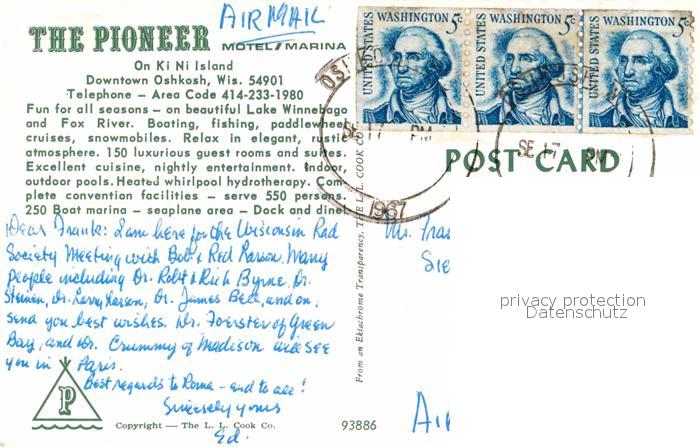 AIR MAIL
THE PIONEER
MOTEL/MARINA
On Ki Ni Island
Downtown Oshkosh, Wis. 54901
Telephone – Area Code 414-233-1980
Fun for all seasons – on beautiful Lake Winnebago
and Fox River. Boating, fishing, paddlewheel
cruises, snowmobiles. Relax in elegant, rustic
atmosphere. 150 luxurious guest rooms and suites.
Excellent cuisine, nightly entertainment. Indoor,
outdoor pools. Heated whirlpool hydrotherapy. Com
plete convention facilities – serve 550 persons.
250 Boat marina – seaplane area – Dock and dine!
Dear Frank: I am here for the Wisconsin Rad
Society Meeting with Bob & Red Larson. Many
people including Dr. Robt & Rich Byrne, Dr.
Steinen, Dr. Larry Larson, Dr. James Bell, and on,
send you best wishes. Dr. Foerster of Green
Bay, and Dr. Crummy of Madison will see
you in Paris.
Best regards to Roma – and to all!
Sincerely yours
Ed.
P
Copyright — The L. L. Cook Co.
93886
From an Ektachrome Transparency, THE L. L. COOK CO
UNITED STATES WASHINGTON 5c
UNITED STATES WASHINGTON 5c
UNITED STATES WASHINGTON 5c
SE 17 PM
1967
SE 17 PM
POST CARD
Mr. Fra
Sie
privacy protection
Datenschutz
Ai